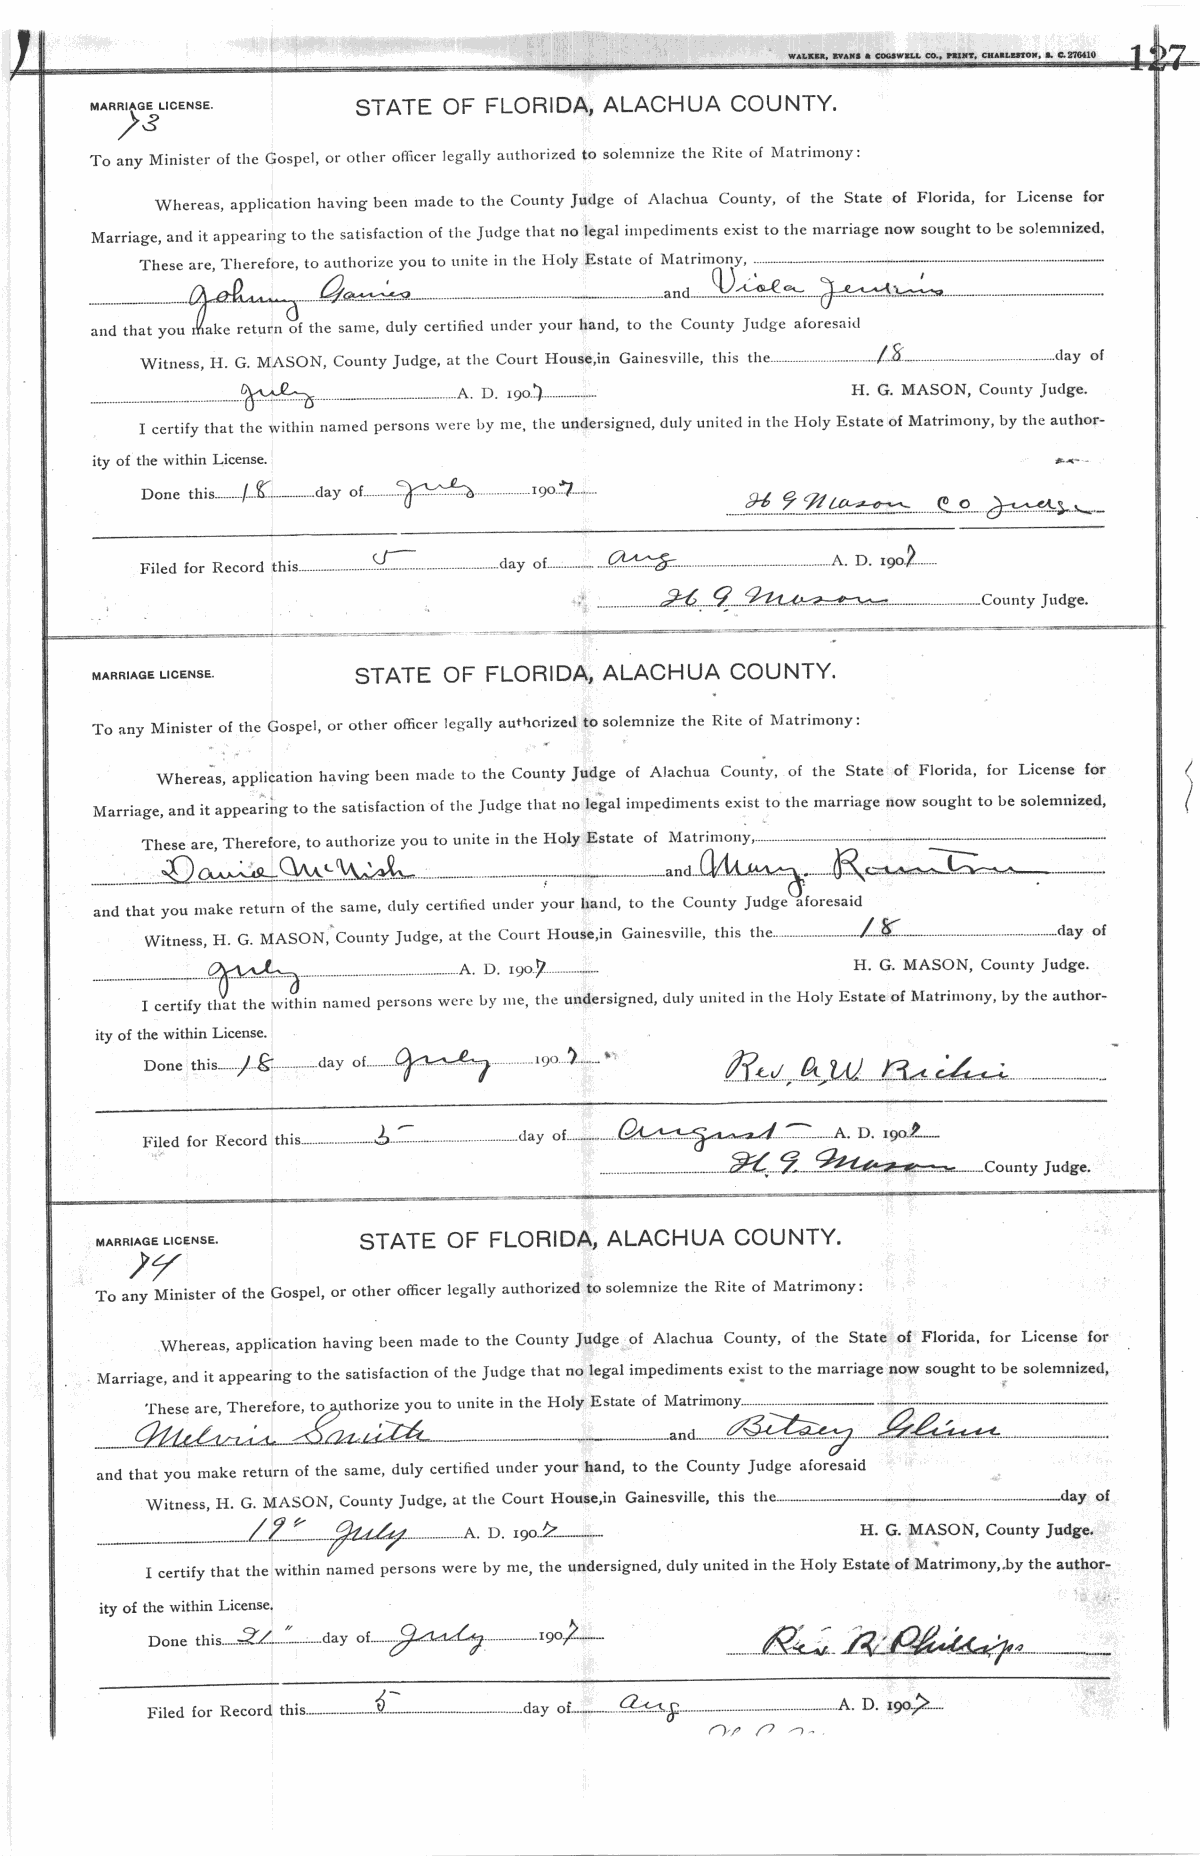 WALKER, EVANS & COGSWELL CO., PRINT, CHARLESTON, S. C. 276410 127
MARRIAGE LICENSE. STATE OF FLORIDA, ALACHUA COUNTY.
73
To any Minister of the Gospel, or other officer legally authorized to solemnize the Rite of Matrimony:
Whereas, application having been made to the County Judge of Alachua County, of the State of Florida, for License for
Marriage, and it appearing to the satisfaction of the Judge that no legal impediments exist to the marriage now sought to be solemnized,
These are, Therefore, to authorize you to unite in the Holy Estate of Matrimony,
Johnny and Viola Jenkins
and that you make return of the same, duly certified under your hand, to the County Judge aforesaid
Witness, H. G. MASON, County Judge, at the Court House, in Gainesville, this the 18 day of
July A. D. 1907 H. G. MASON, County Judge.
I certify that the within named persons were by me, the undersigned, duly united in the Holy Estate of Matrimony, by the author-
ity of the within License.
Done this 18 day of July 1907
H G Mason Co Judge
Filed for Record this 5 day of Aug A. D. 1907
H. G. Mason County Judge.
MARRIAGE LICENSE. STATE OF FLORIDA, ALACHUA COUNTY.
To any Minister of the Gospel, or other officer legally authorized to solemnize the Rite of Matrimony:
Whereas, application having been made to the County Judge of Alachua County, of the State of Florida, for License for
Marriage, and it appearing to the satisfaction of the Judge that no legal impediments exist to the marriage now sought to be solemnized,
These are, Therefore, to authorize you to unite in the Holy Estate of Matrimony,
McNish and Mary Rountree
and that you make return of the same, duly certified under your hand, to the County Judge aforesaid
Witness, H. G. MASON, County Judge, at the Court House, in Gainesville, this the 18 day of
July A. D. 1907 H. G. MASON, County Judge.
I certify that the within named persons were by me, the undersigned, duly united in the Holy Estate of Matrimony, by the author-
ity of the within License.
Done this 18 day of July 1907 Rev. A. W.
Filed for Record this 5 day of August A. D. 1907
H. G. Mason County Judge.
MARRIAGE LICENSE. STATE OF FLORIDA, ALACHUA COUNTY.
74
To any Minister of the Gospel, or other officer legally authorized to solemnize the Rite of Matrimony:
Whereas, application having been made to the County Judge of Alachua County, of the State of Florida, for License for
Marriage, and it appearing to the satisfaction of the Judge that no legal impediments exist to the marriage now sought to be solemnized,
These are, Therefore, to authorize you to unite in the Holy Estate of Matrimony
Melvin Smith and Betsey Glinn
and that you make return of the same, duly certified under your hand, to the County Judge aforesaid
Witness, H. G. MASON, County Judge, at the Court House, in Gainesville, this the day of
19" July A. D. 1907 H. G. MASON, County Judge.
I certify that the within named persons were by me, the undersigned, duly united in the Holy Estate of Matrimony, by the author-
ity of the within License.
Done this 21" day of July 1907 Rev R. Phillips
Filed for Record this 5 day of Aug A. D. 1907